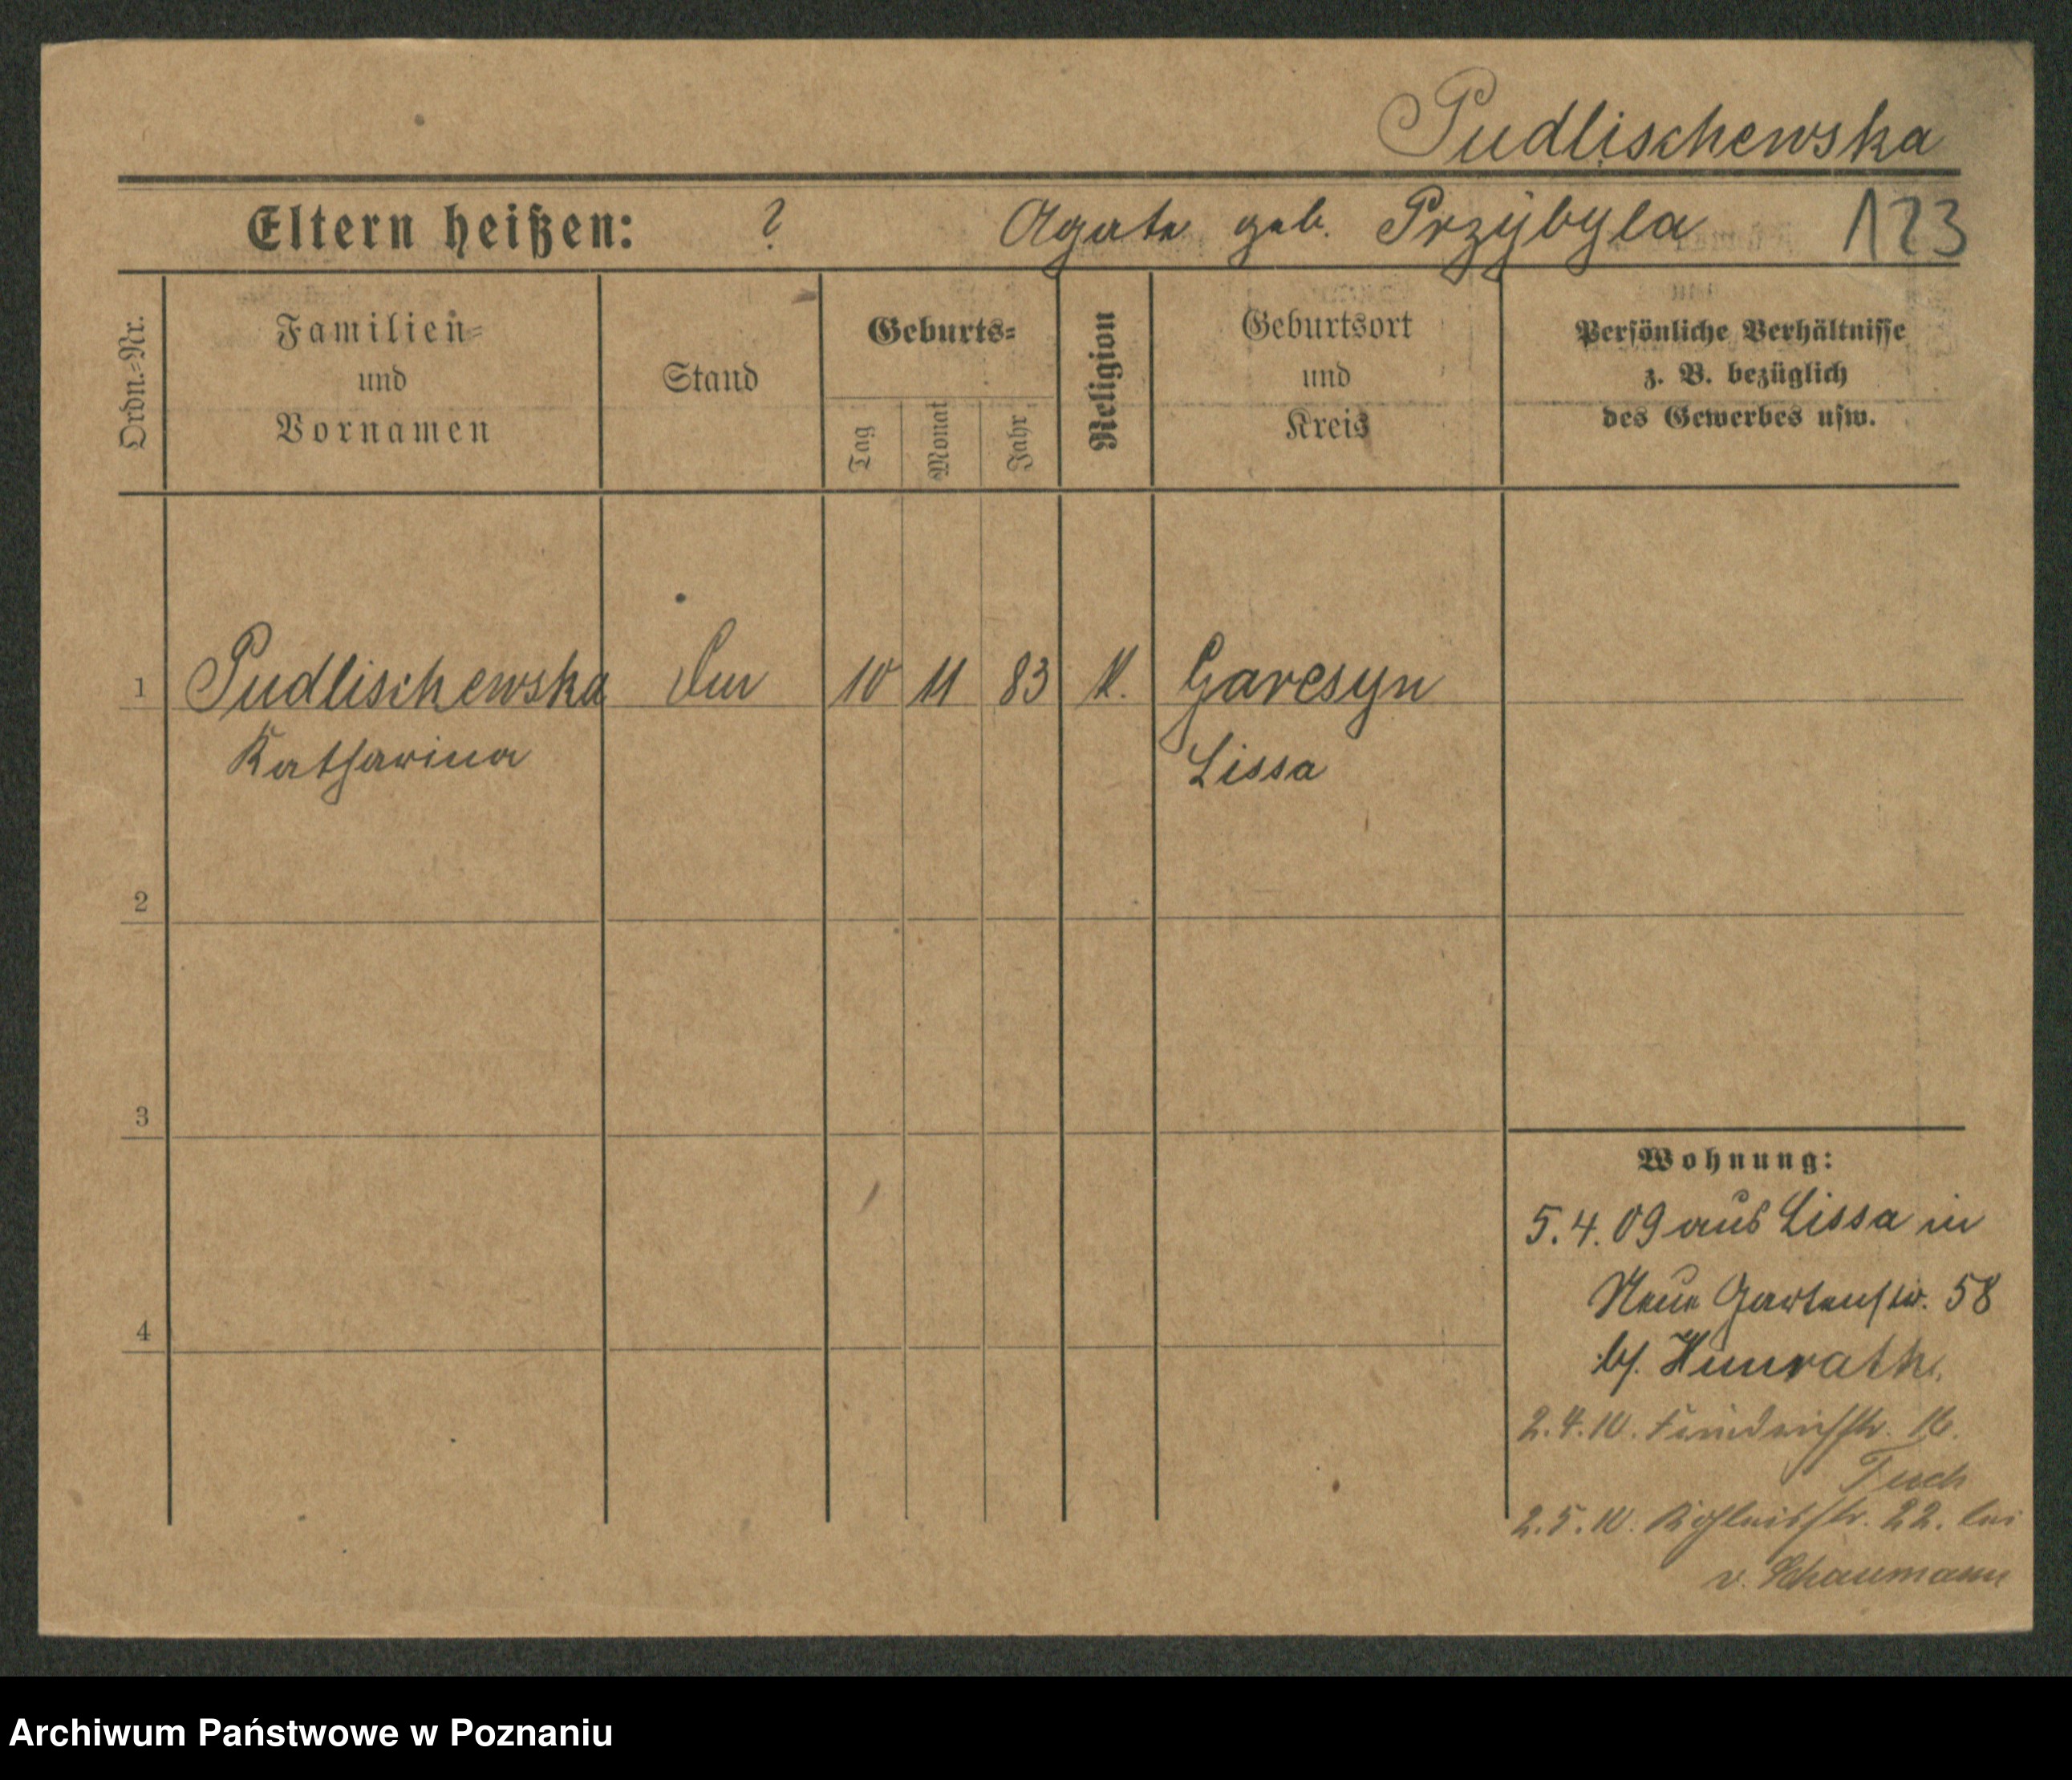 Pudlischewska
Eltern heißen: ? Agate geb. Przybyla 123
Ordn.=Nr.
Familien=
und
Vornamen
Stand
Geburts=
Tag
Monat
Jahr
Religion
Geburtsort
und
Kreis
Persönliche Verhältnisse
z. B. bezüglich
des Gewerbes usw.
1 Pudlischewska 10 11 83 K. Garcsyn
Katharina Lissa
2
3
4
Wohnung:
5.4.09 aus Lissa in
Neue Gartenstr. 58
b/. Hunrath.
2.4.10. Friedrichstr. 16.
2.5.10. 22. bei
v. Schaumann
Archiwum Państwowe w Poznaniu